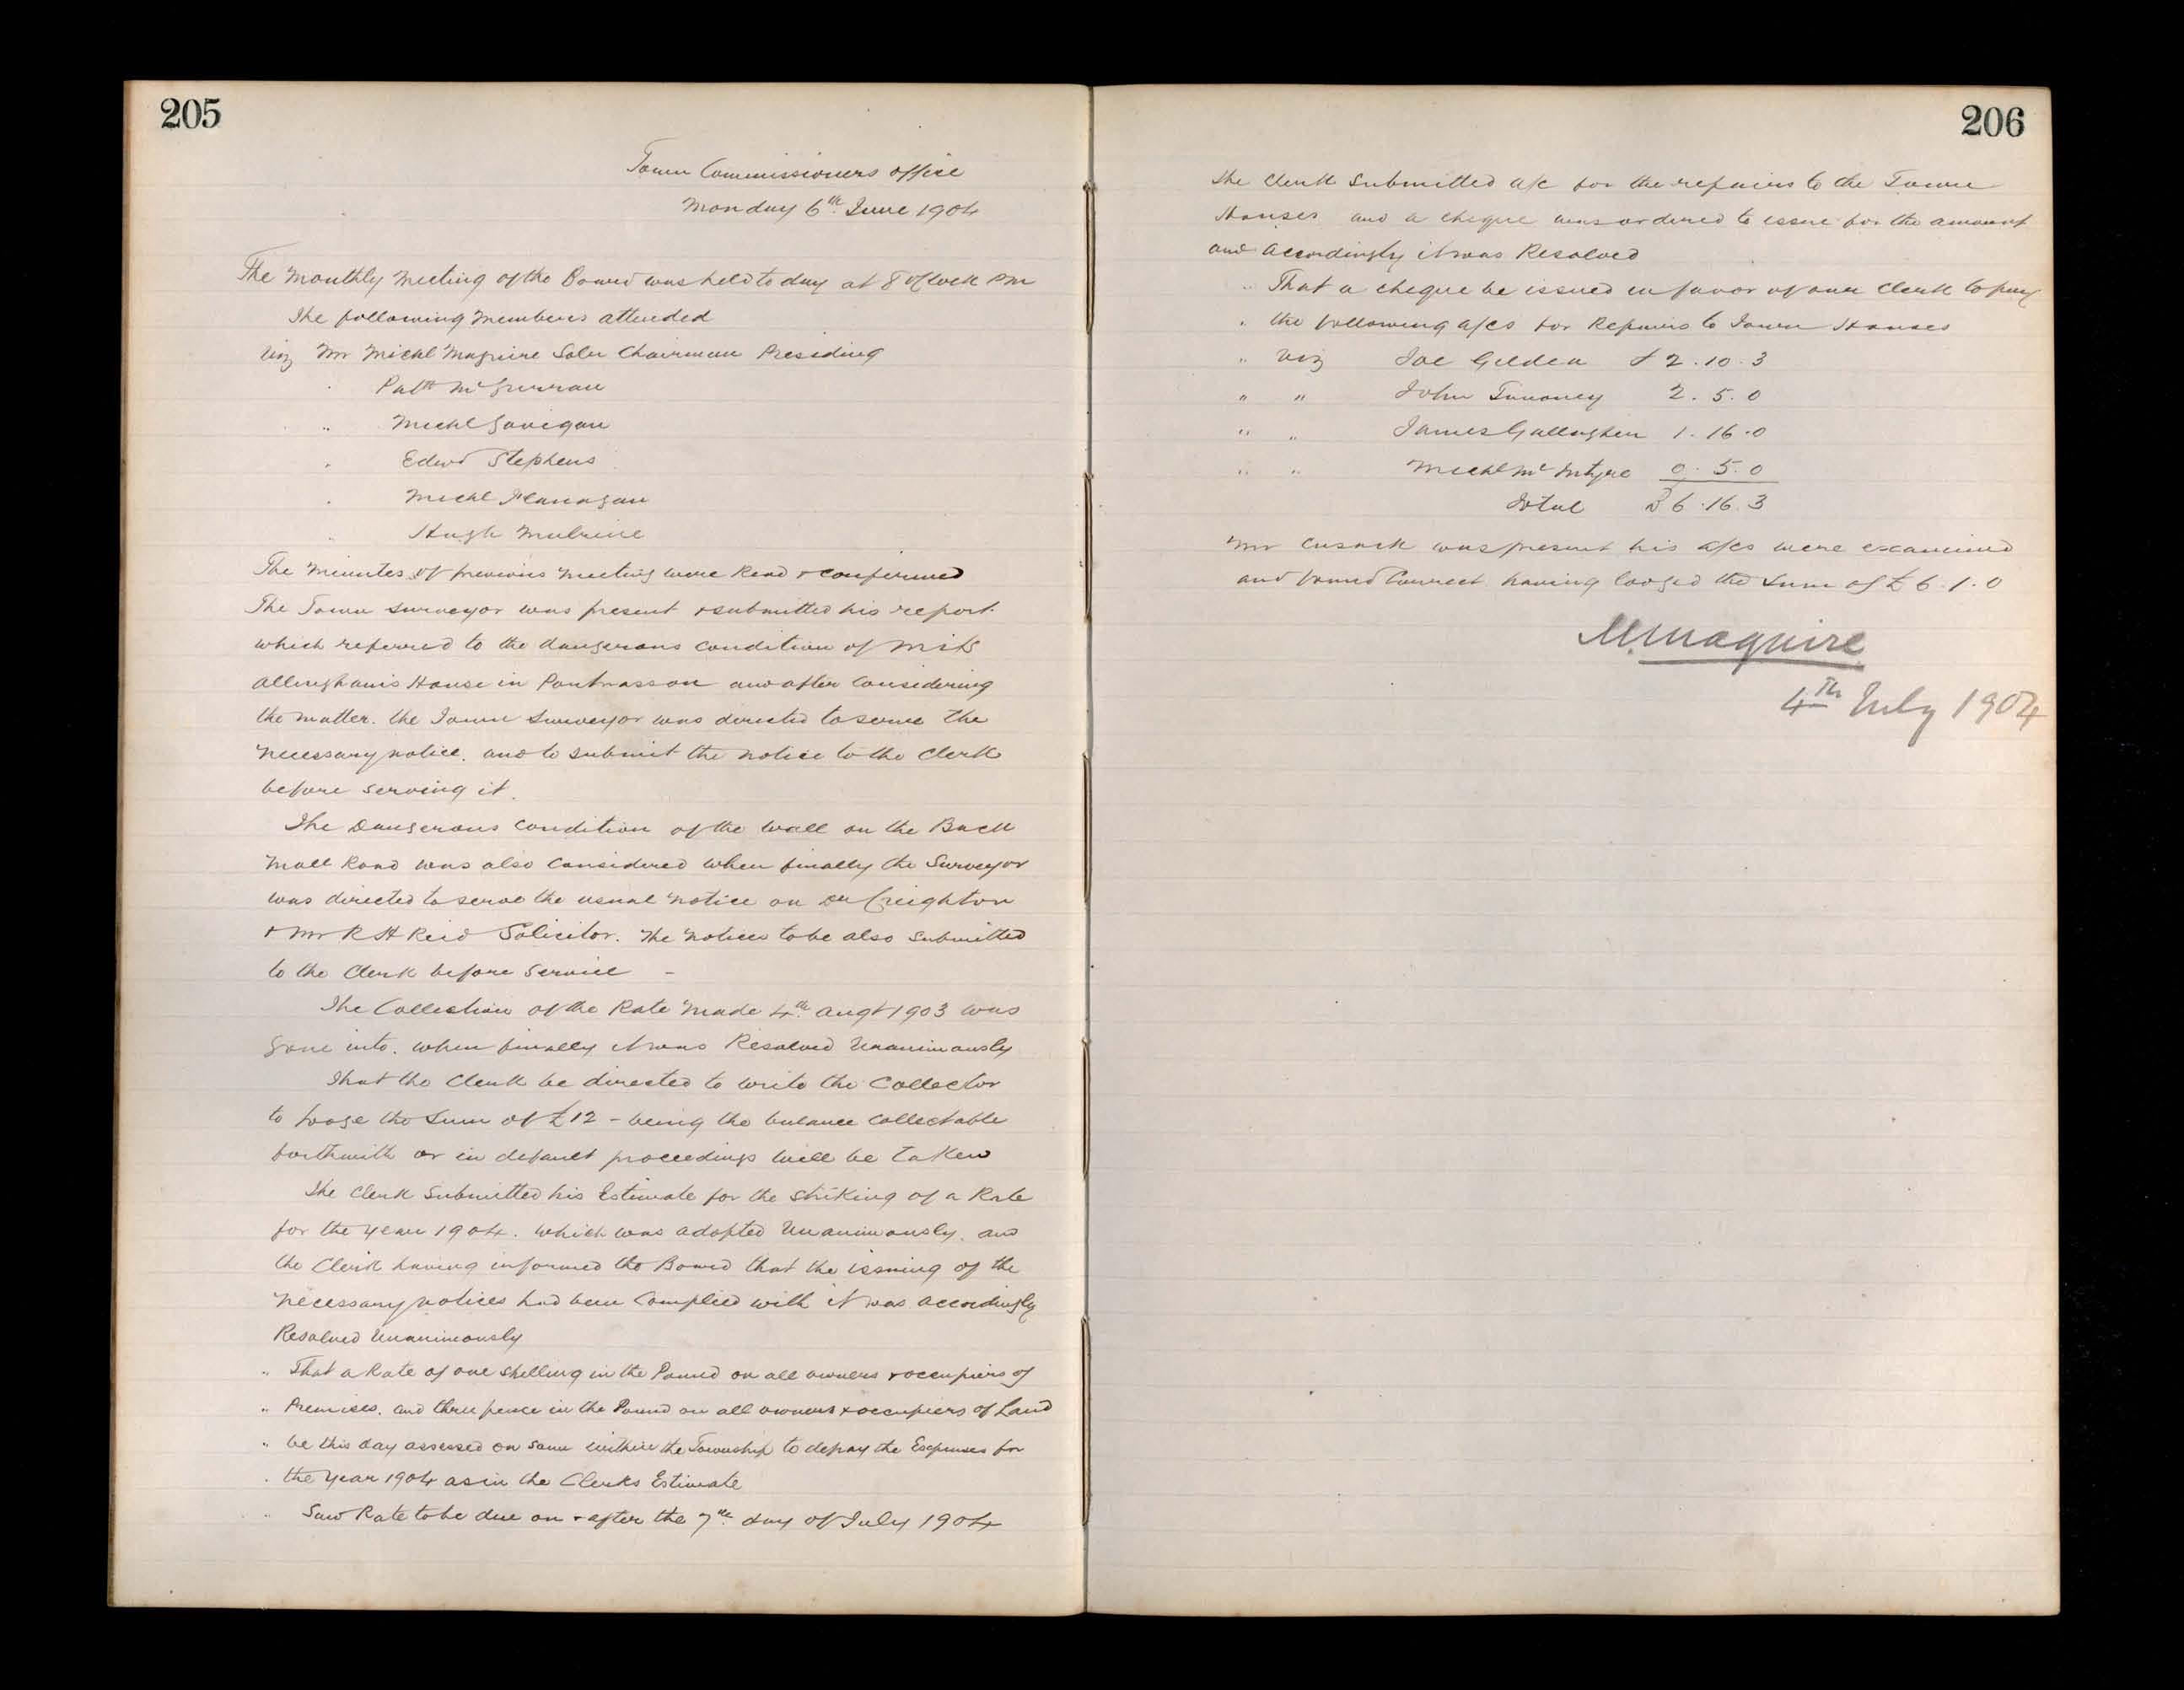 205
Town Commissioners office
Monday 6th June 1904
The Monthly Meeting of the Board was held to day at 8 oClock PM
The following Members attended
Viz Mr Michl Maguire Solr Chairman Presiding
" Patk McGurran
" Michl Gavigan
" Edwd Stephens
" Michl Flanagan
" Hugh Mulrine
The Minutes of previous Meeting were Read & confirmed
The Town Surveyor was present & submitted his report
which referred to the dangerous condition of
Allinghams House in Portnasson and after Considering
the matter. the Town Surveyor was directed to serve the
necessary notice. and to submit the notice to the Clerk
before serving it.
The Dangerous condition of the wall on the Back
Mall Road was also Considered when finally the Surveyor
was directed to serve the usual notice on Dr Creighton
& Mr R H Reid Solicitor. The notices to be also submitted
to the Clerk before Service -
The Collection of the Rate Made 4th Augt 1903 was
gone into. when finally it was Resolved Unanimously
That the Clerk be directed to write the Collector
to lodge the Sum of £12 - being the balance Collectable
forthwith or in default proceedings will be taken
The Clerk Submitted his Estimate for the Striking of a Rate
for the year 1904. which was adopted Unanimously. and
the Clerk having informed the Board that the issuing of the
necessary notices had been Complied with it was accordingly
Resolved Unanimously
" That a Rate of one Shilling in the Pound on all owners & occupiers of
" Premises. and three pence in the Pound on all owners & occupiers of Land
" be this day assessed on same within the Township to defray the Expenses for
" the year 1904 as in the Clerks Estimate
" Said Rate to be due on & after the 7th day of July 1904
206
The Clerk Submitted a/c for the repairs to the Town
Houses and a cheque was ordered to issue for the amount
and accordingly it was Resolved
" That a cheque be issued in favor of our Clerk to pay
" the following a/cs for Repairs to Town Houses
" Viz Joe Gildea £ 2.10.3
" " John Tunoney 2.5.0
" " James Gallagher 1.16.0
" " Michl McIntyre 0.5.0
Total £ 6.16.3
Mr Cusack was present his a/cs were examined
and found Correct having lodged the Sum of £6.1.0
M. Maguire
4th July 1904